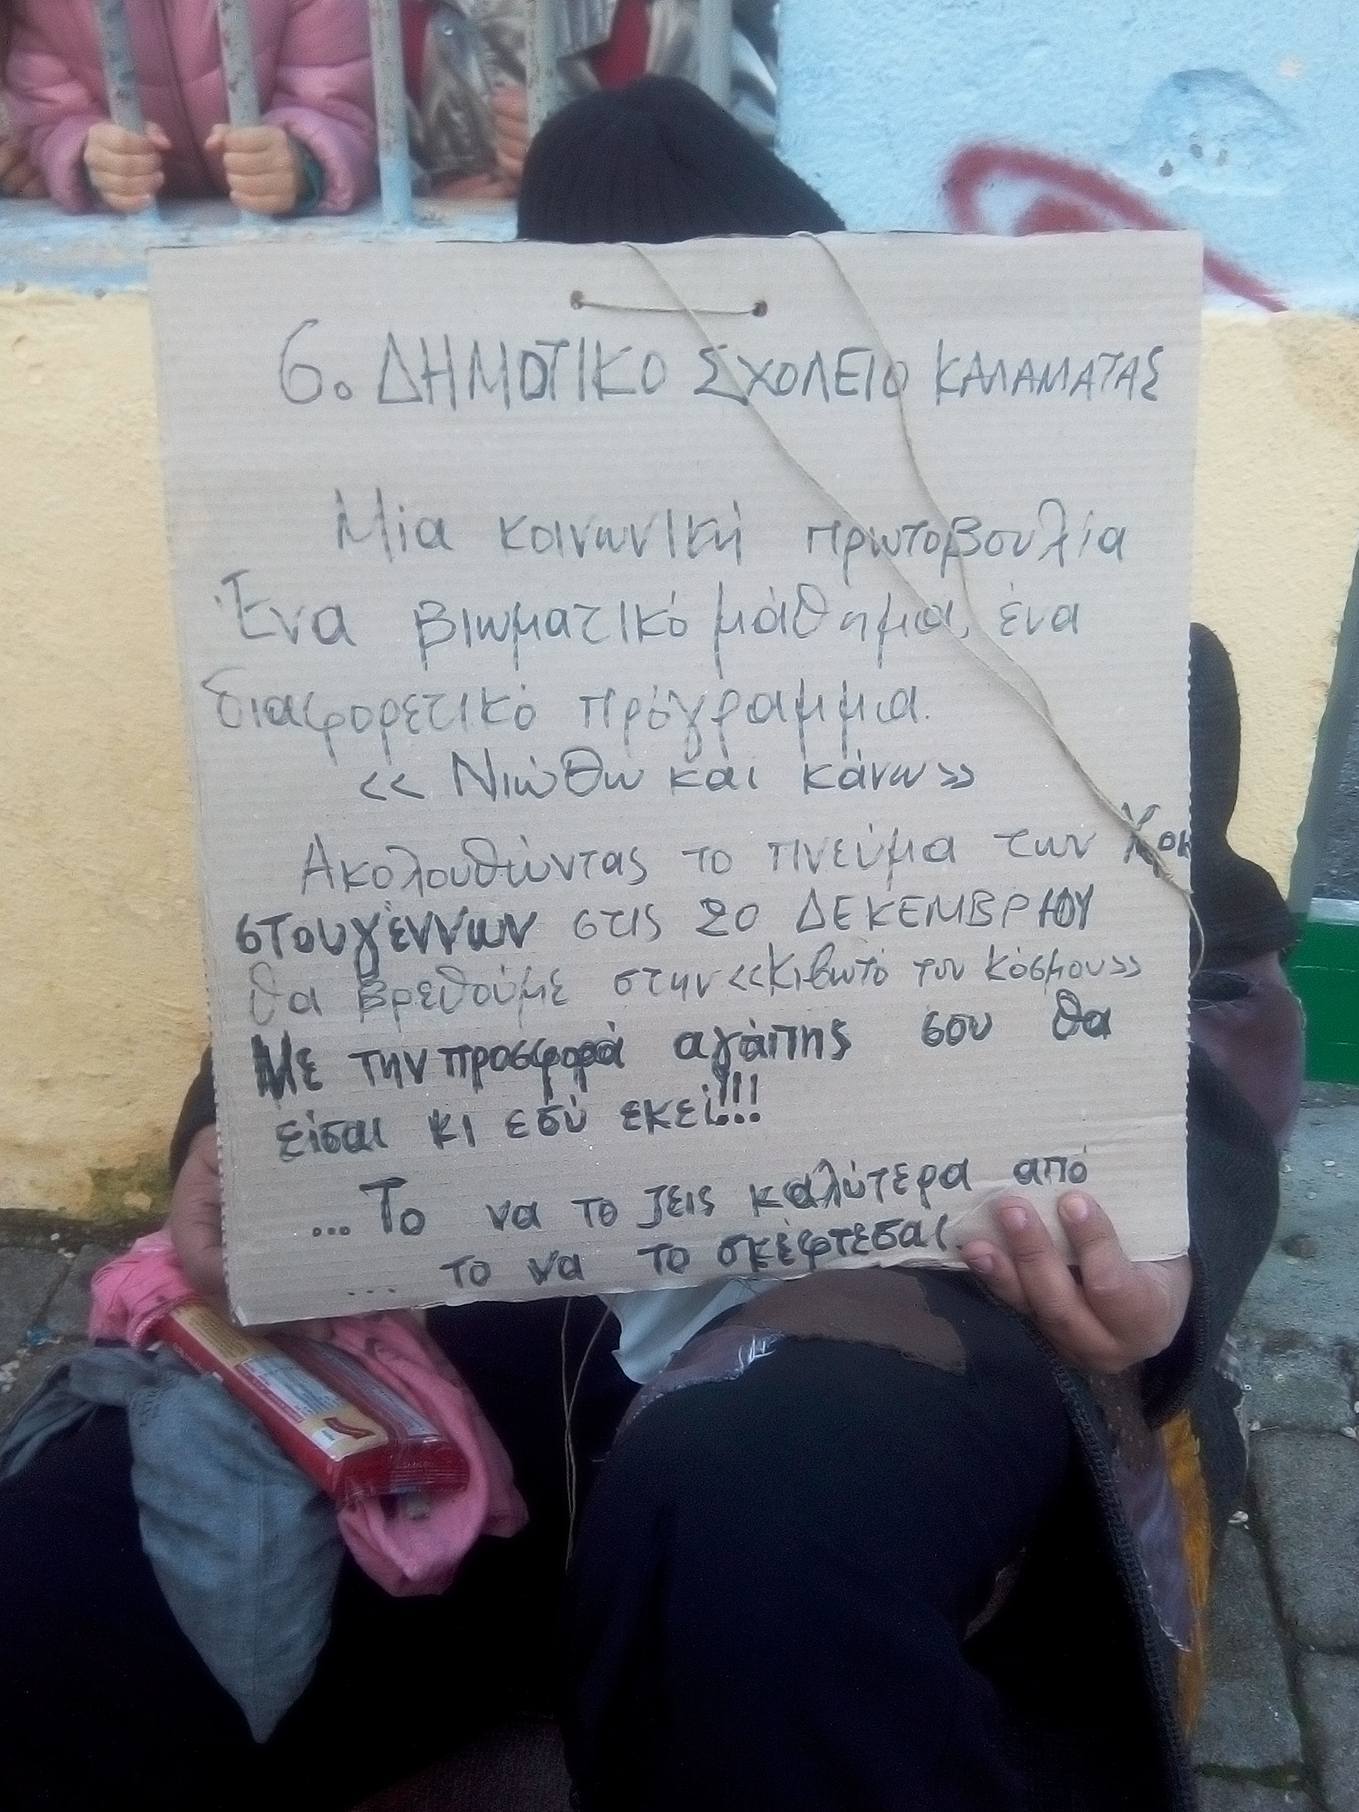 6ο ΔΗΜΟΤΙΚΟ ΣΧΟΛΕΙΟ ΚΑΛΑΜΑΤΑΣ
Μία κοινωνική πρωτοβουλία
Ένα βιωματικό μάθημα, ένα
διαφορετικό πρόγραμμα.
<< Νιώθω και κάνω >>
Ακολουθώντας το πνεύμα των Χρι
στουγέννων στις 20 ΔΕΚΕΜΒΡΙΟΥ
θα βρεθούμε στην <<Κιβωτό του κόσμου>>
Με την προσφορά αγάπης σου θα
είσαι κι εσύ εκεί!!!
... Το να το ζεις καλύτερα από
... το να το σκέφτεσαι.